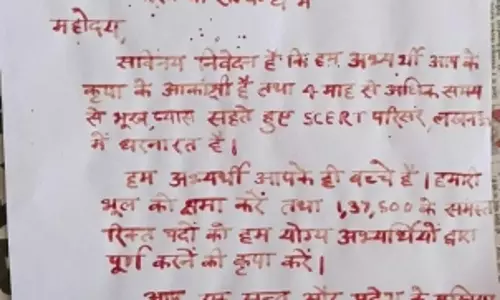 महोदय,
सविनय निवेदन है कि हम अभ्यर्थी आप के
कृपा के आकांक्षी है तथा 4 माह से अधिक समय
से भूख, प्यास सहते हुए SCERT परिसर, लखनऊ
में धरनारत है।
हम अभ्यर्थी आपके ही बच्चे है। हमारी
भूल को क्षमा करें तथा 1,37,500 के समस्त
रिक्त पदों को हम योग्य अभ्यर्थियों द्वारा
पूर्ण करने की कृपा करें।